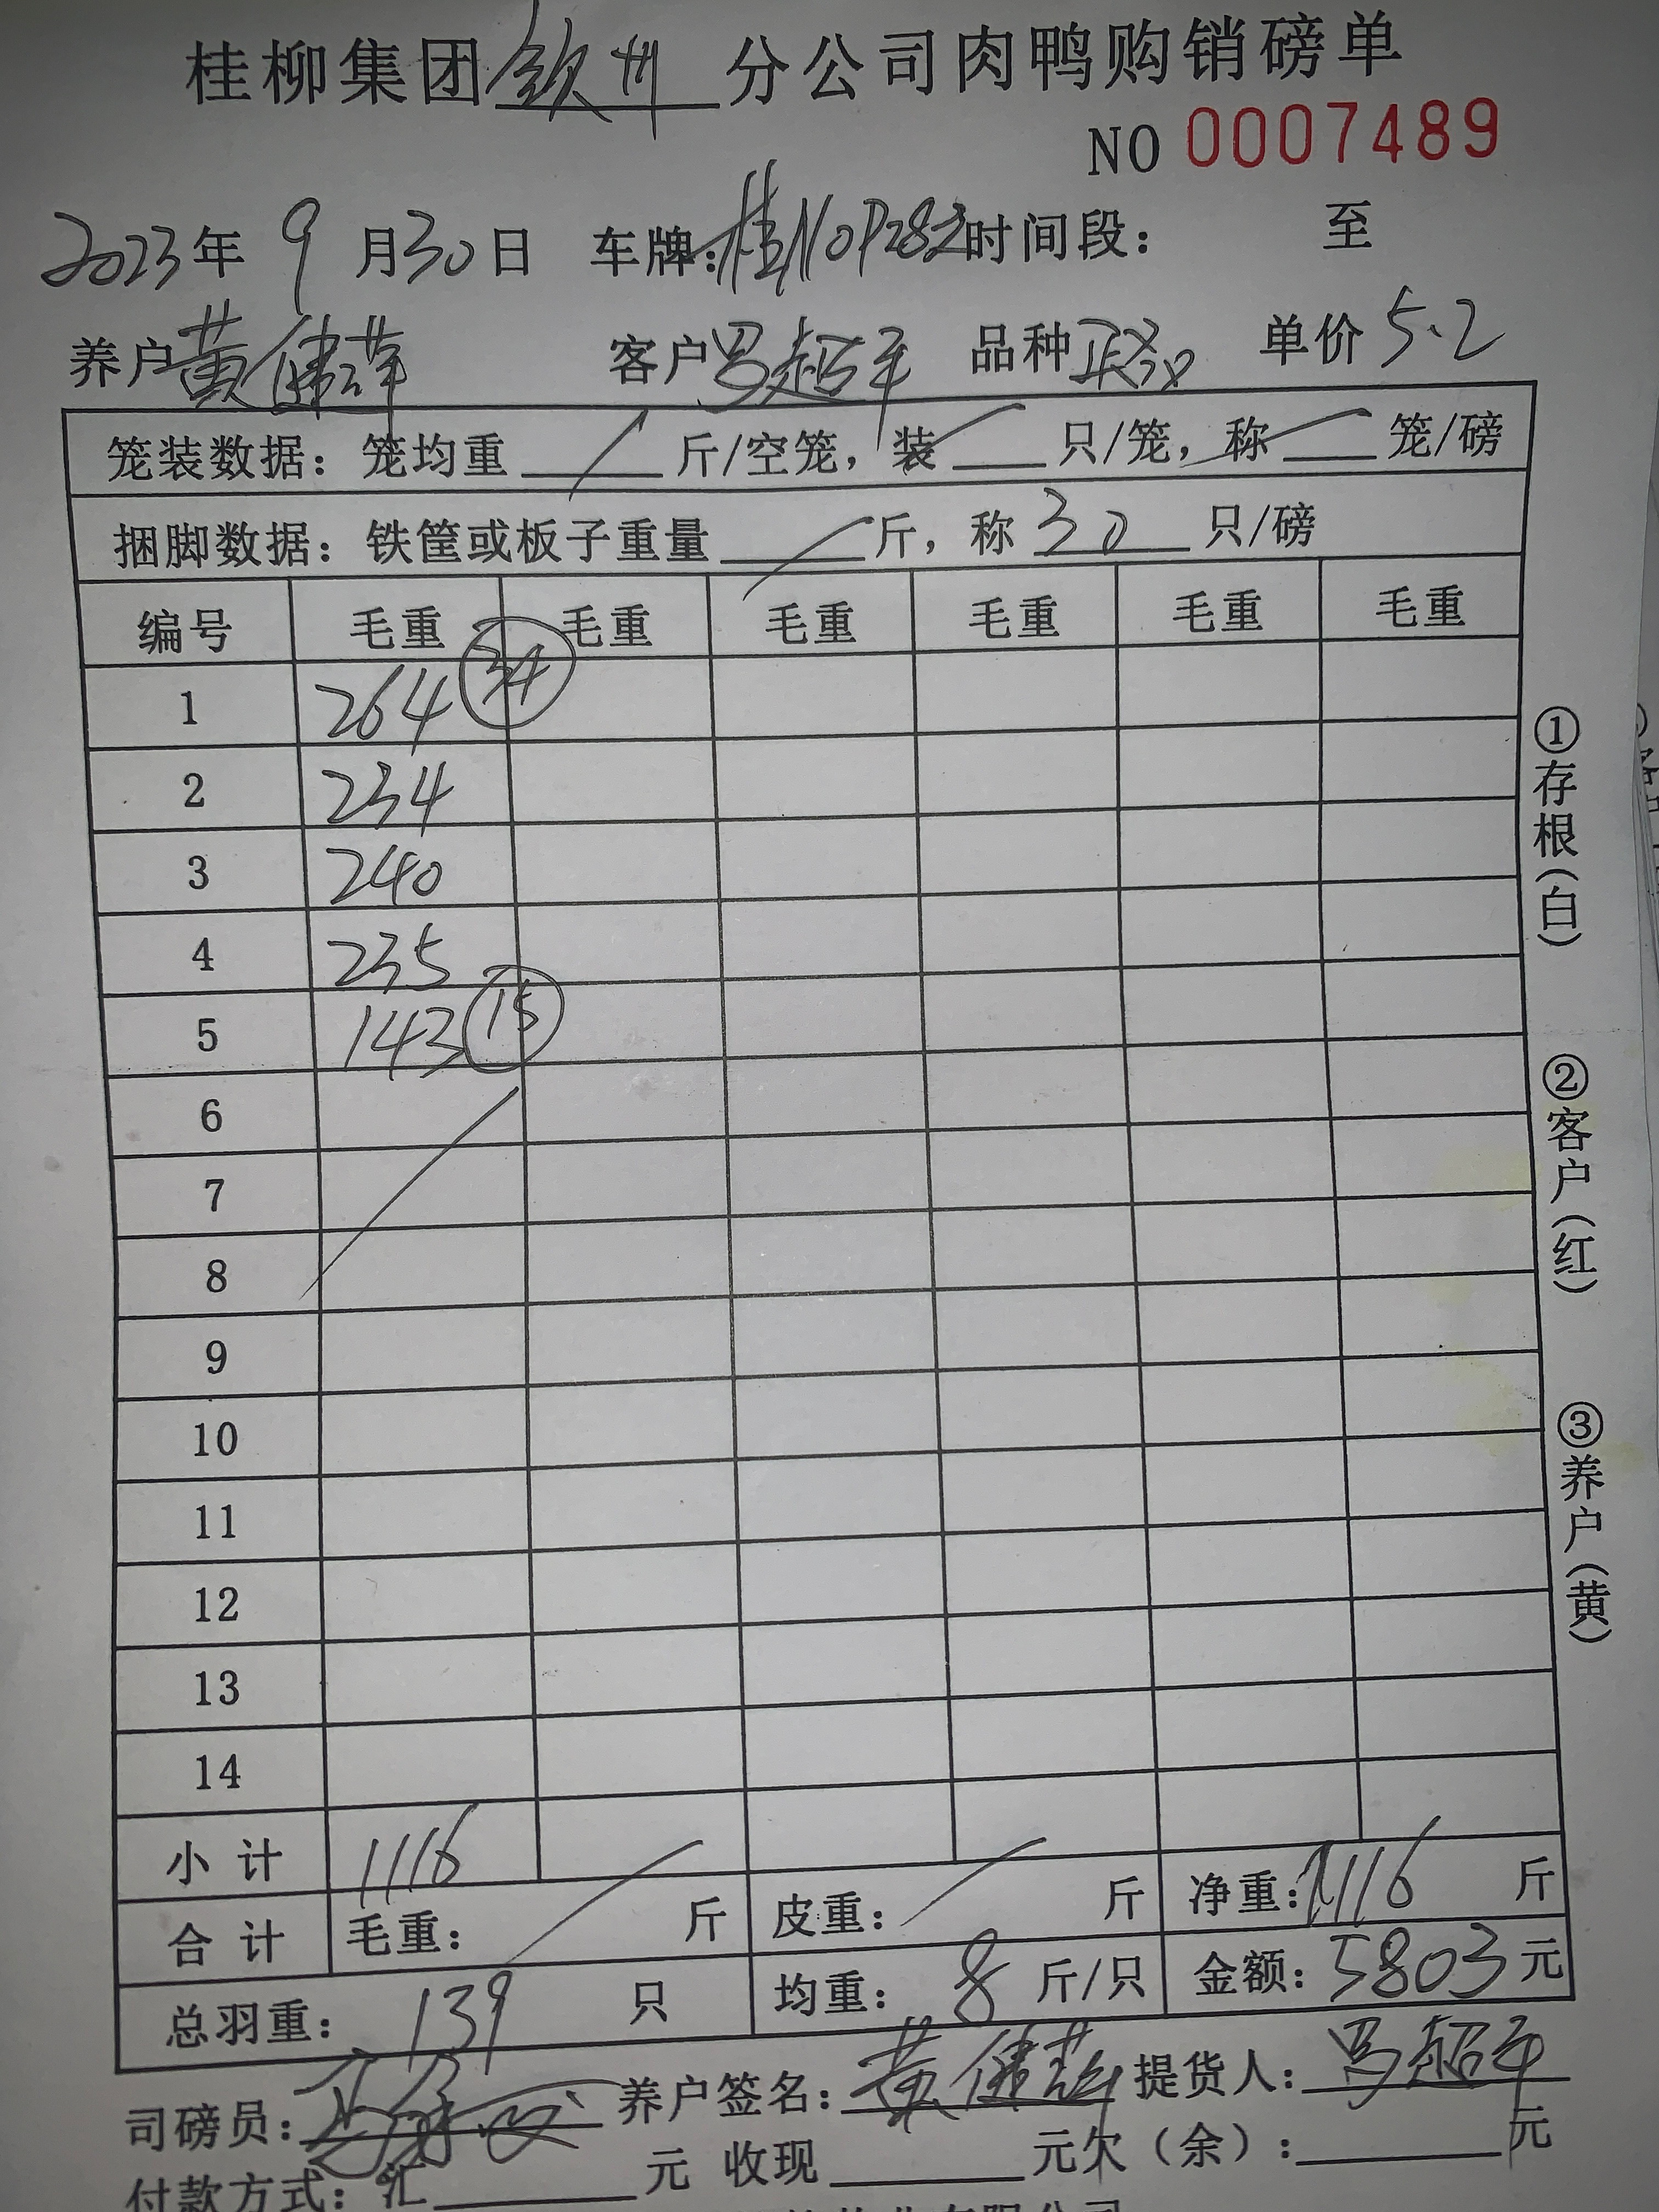 桂柳集团钦州分公司肉鸭购销磅单
NO 0007489
2023年 9 月30日 车牌:桂N0P282时间段: 至
养户黄健萍 客户罗超平 品种 单价5.2
笼装数据:笼均重 斤/空笼,装 只/笼,称 笼/磅
捆脚数据:铁筐或板子重量 斤,称 30 只/磅
编号 毛重 毛重 毛重 毛重 毛重 毛重
1 264 34
2 234
3 240
4 235
5 143 15
6
7
8
9
10
11
12
13
14
小 计 1116
合 计 毛重: 斤 皮重: 斤 净重:1116 斤
总羽重: 139 只 均重: 8 斤/只 金额:5803元
司磅员: 养户签名:黄健萍 提货人:罗超平
付款方式:汇 元 收现 元欠(余): 元
①存根(白)
②客户(红)
③养户(黄)